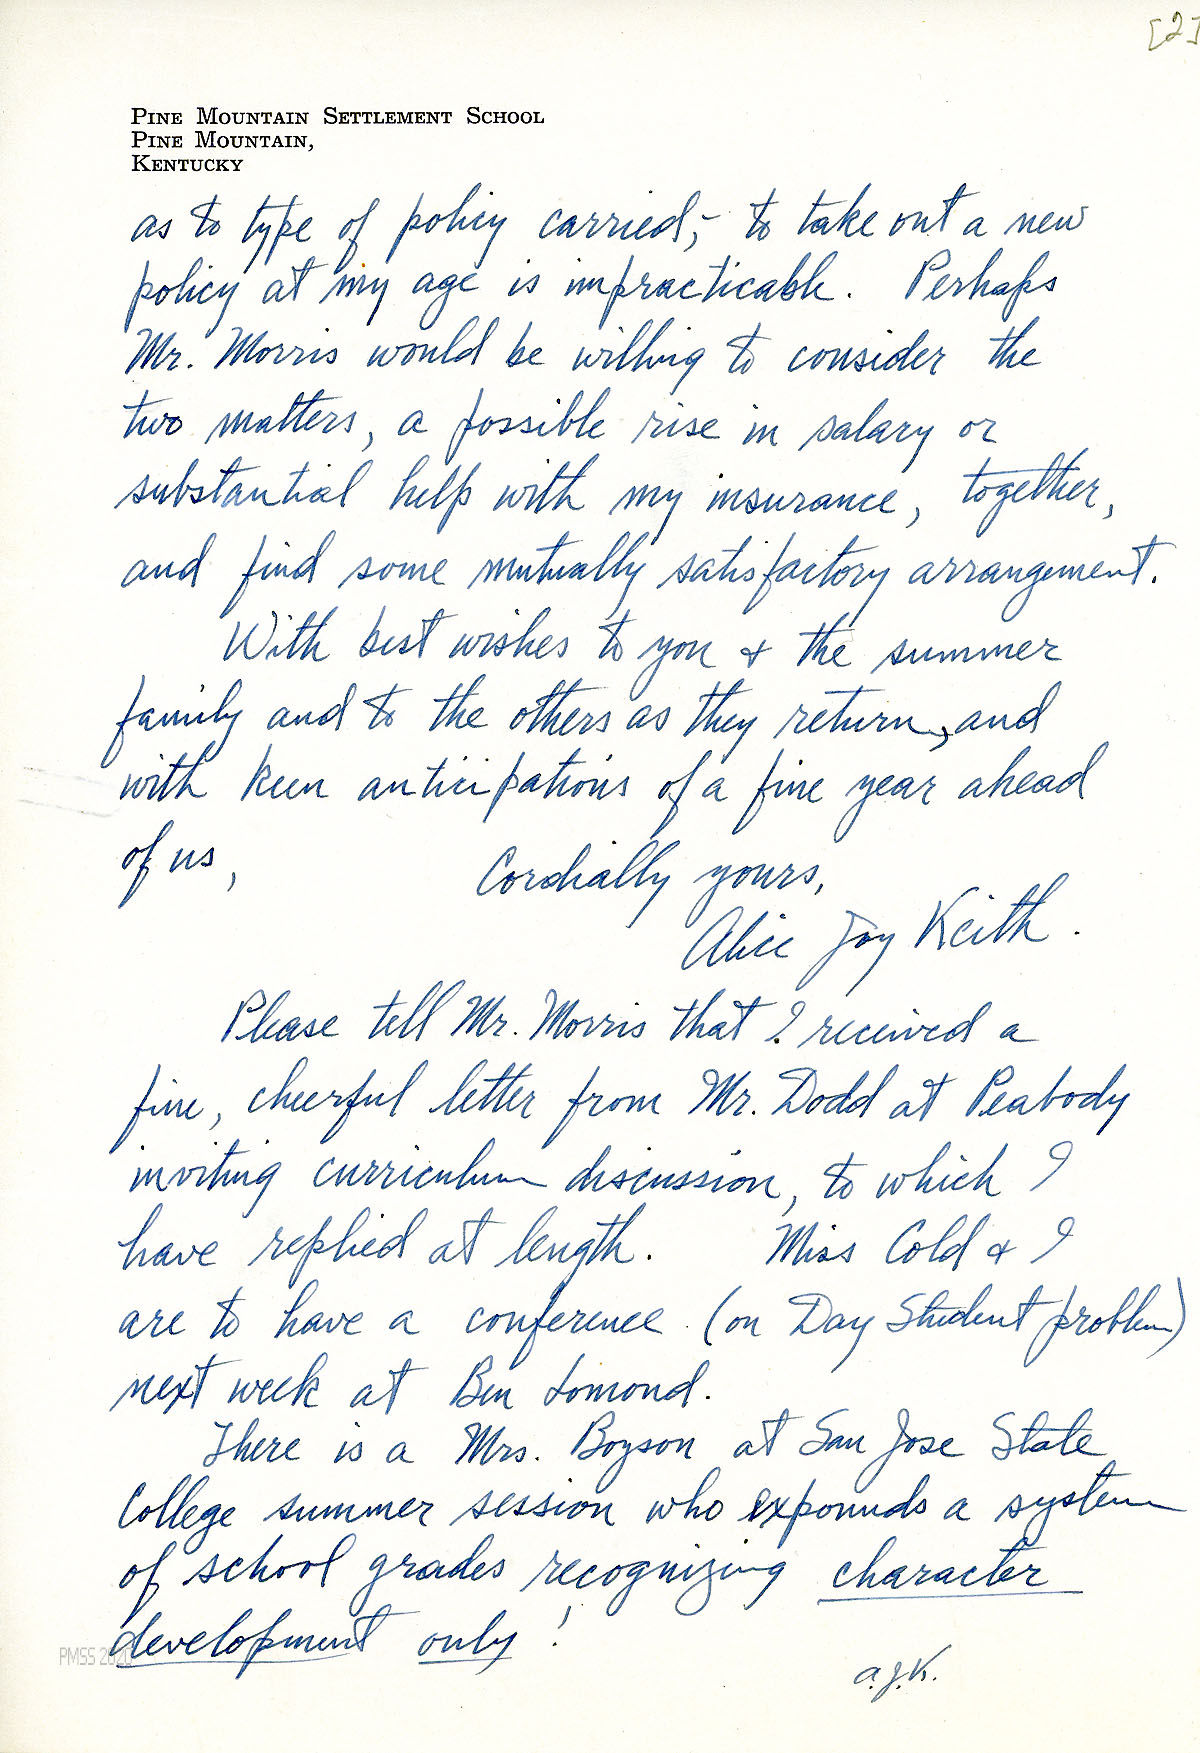 [2]
Pine Mountain Settlement School
Pine Mountain,
Kentucky
as to type of policy carried,- to take out a new
policy at my age is impracticable. Perhaps
Mr. Morris would be willing to consider the
two matters, a possible rise in salary or
substantial help with my insurance, together,
and find some mutually satisfactory arrangement.
With best wishes to you & the summer
family and to the others as they return, and
with keen anticipations of a fine year ahead
of us,
Cordially yours,
Alice Joy Keith.
Please tell Mr. Morris that I received a
fine, cheerful letter from Mr. Dodd at Peabody
inviting curriculum discussion, to which I
have replied at length. Miss Cold & I
are to have a conference (on Day Student problem)
next week at Ben Lomond.
There is a Mrs. Boyson at San Jose State
College summer session who expounds a system
of school grades recognizing character
development only!
a.j.K.
PMSS 2020